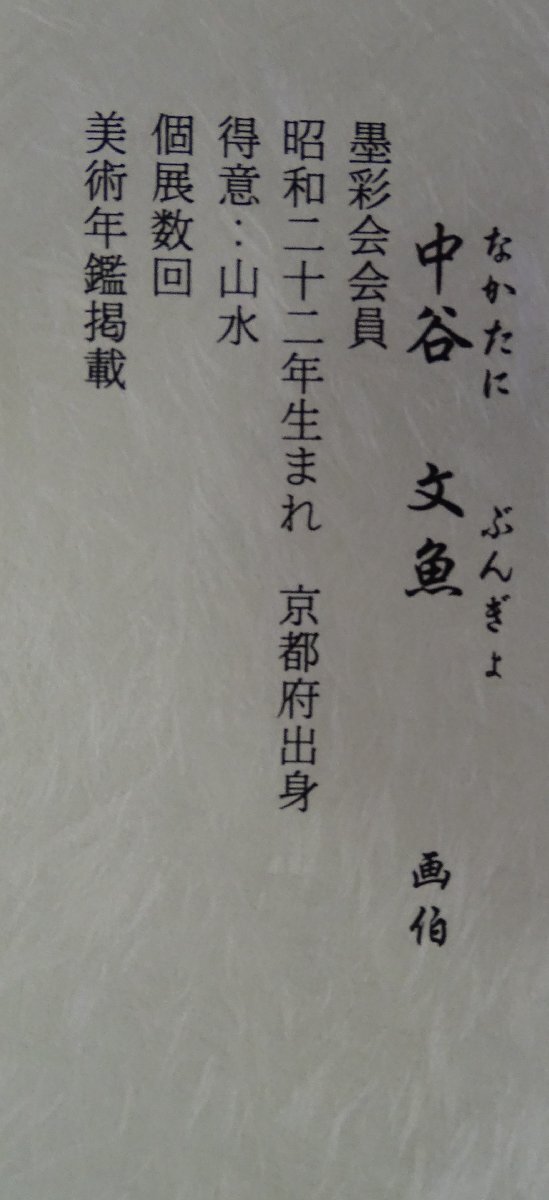 なかたに ぶんぎょ
中谷 文魚 画伯
墨彩会会員
昭和二十二年生まれ 京都府出身
得意：山水
個展数回
美術年鑑掲載